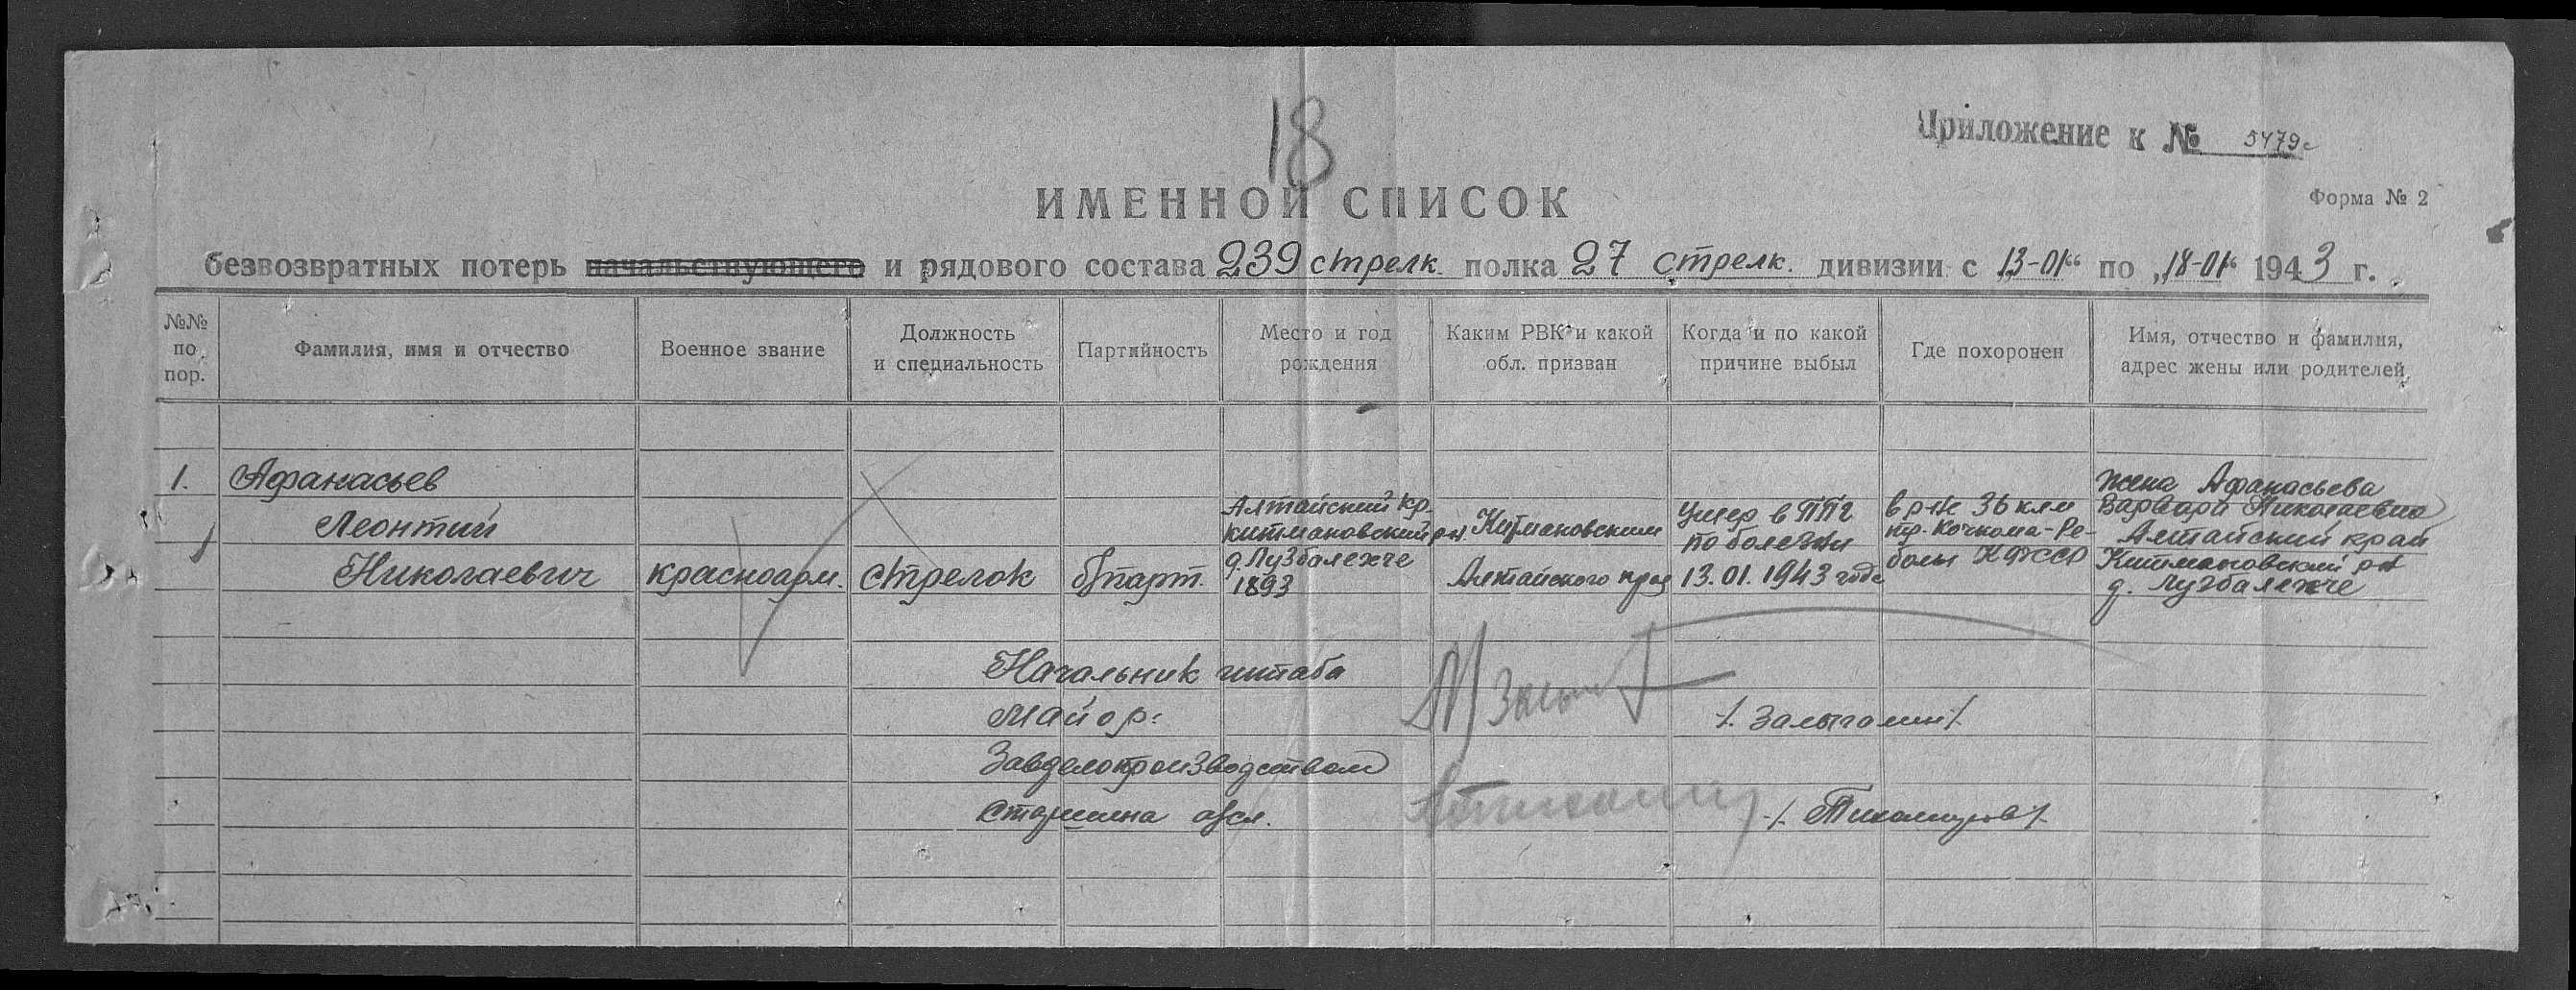 18
Приложение к № 5479с
ИМЕННОЙ СПИСОК
Форма № 2
безвозвратных потерь начальствующего и рядового состава 239 стрелк. полка 27 стрелк. дивизии с „13-01“ по „18-01“ 1943 г.
№№ по пор.
Фамилия, имя и отчество
Военное звание
Должность
и специальность
Партийность
Место и год
рождения
Каким РВК и какой
обл. призван
Когда и по какой
причине выбыл
Где похоронен
Имя, отчество и фамилия,
адрес жены или родителей
1.
Афанасьев
Леонтий
Николаевич
красноарм.
стрелок
б/парт.
Алтайский кр.
Китмановский р-н.
д. Лузбалехче
1893
Китмановским
Алтайского края
Умер в ППГ
по болезни
13.01.1943 года
в р-не 36 клм
тр. Кочкома-Ре-
болы КФССР
Жена Афанасьева
Варвара Николаевна
Алтайский край
Китмановский р-н
д. Лузбалехче
Начальник штаба
Майор:
/. Залыгалин/.
Завделопроизводством
Старшина а/сл.
/. Тихомиров/.